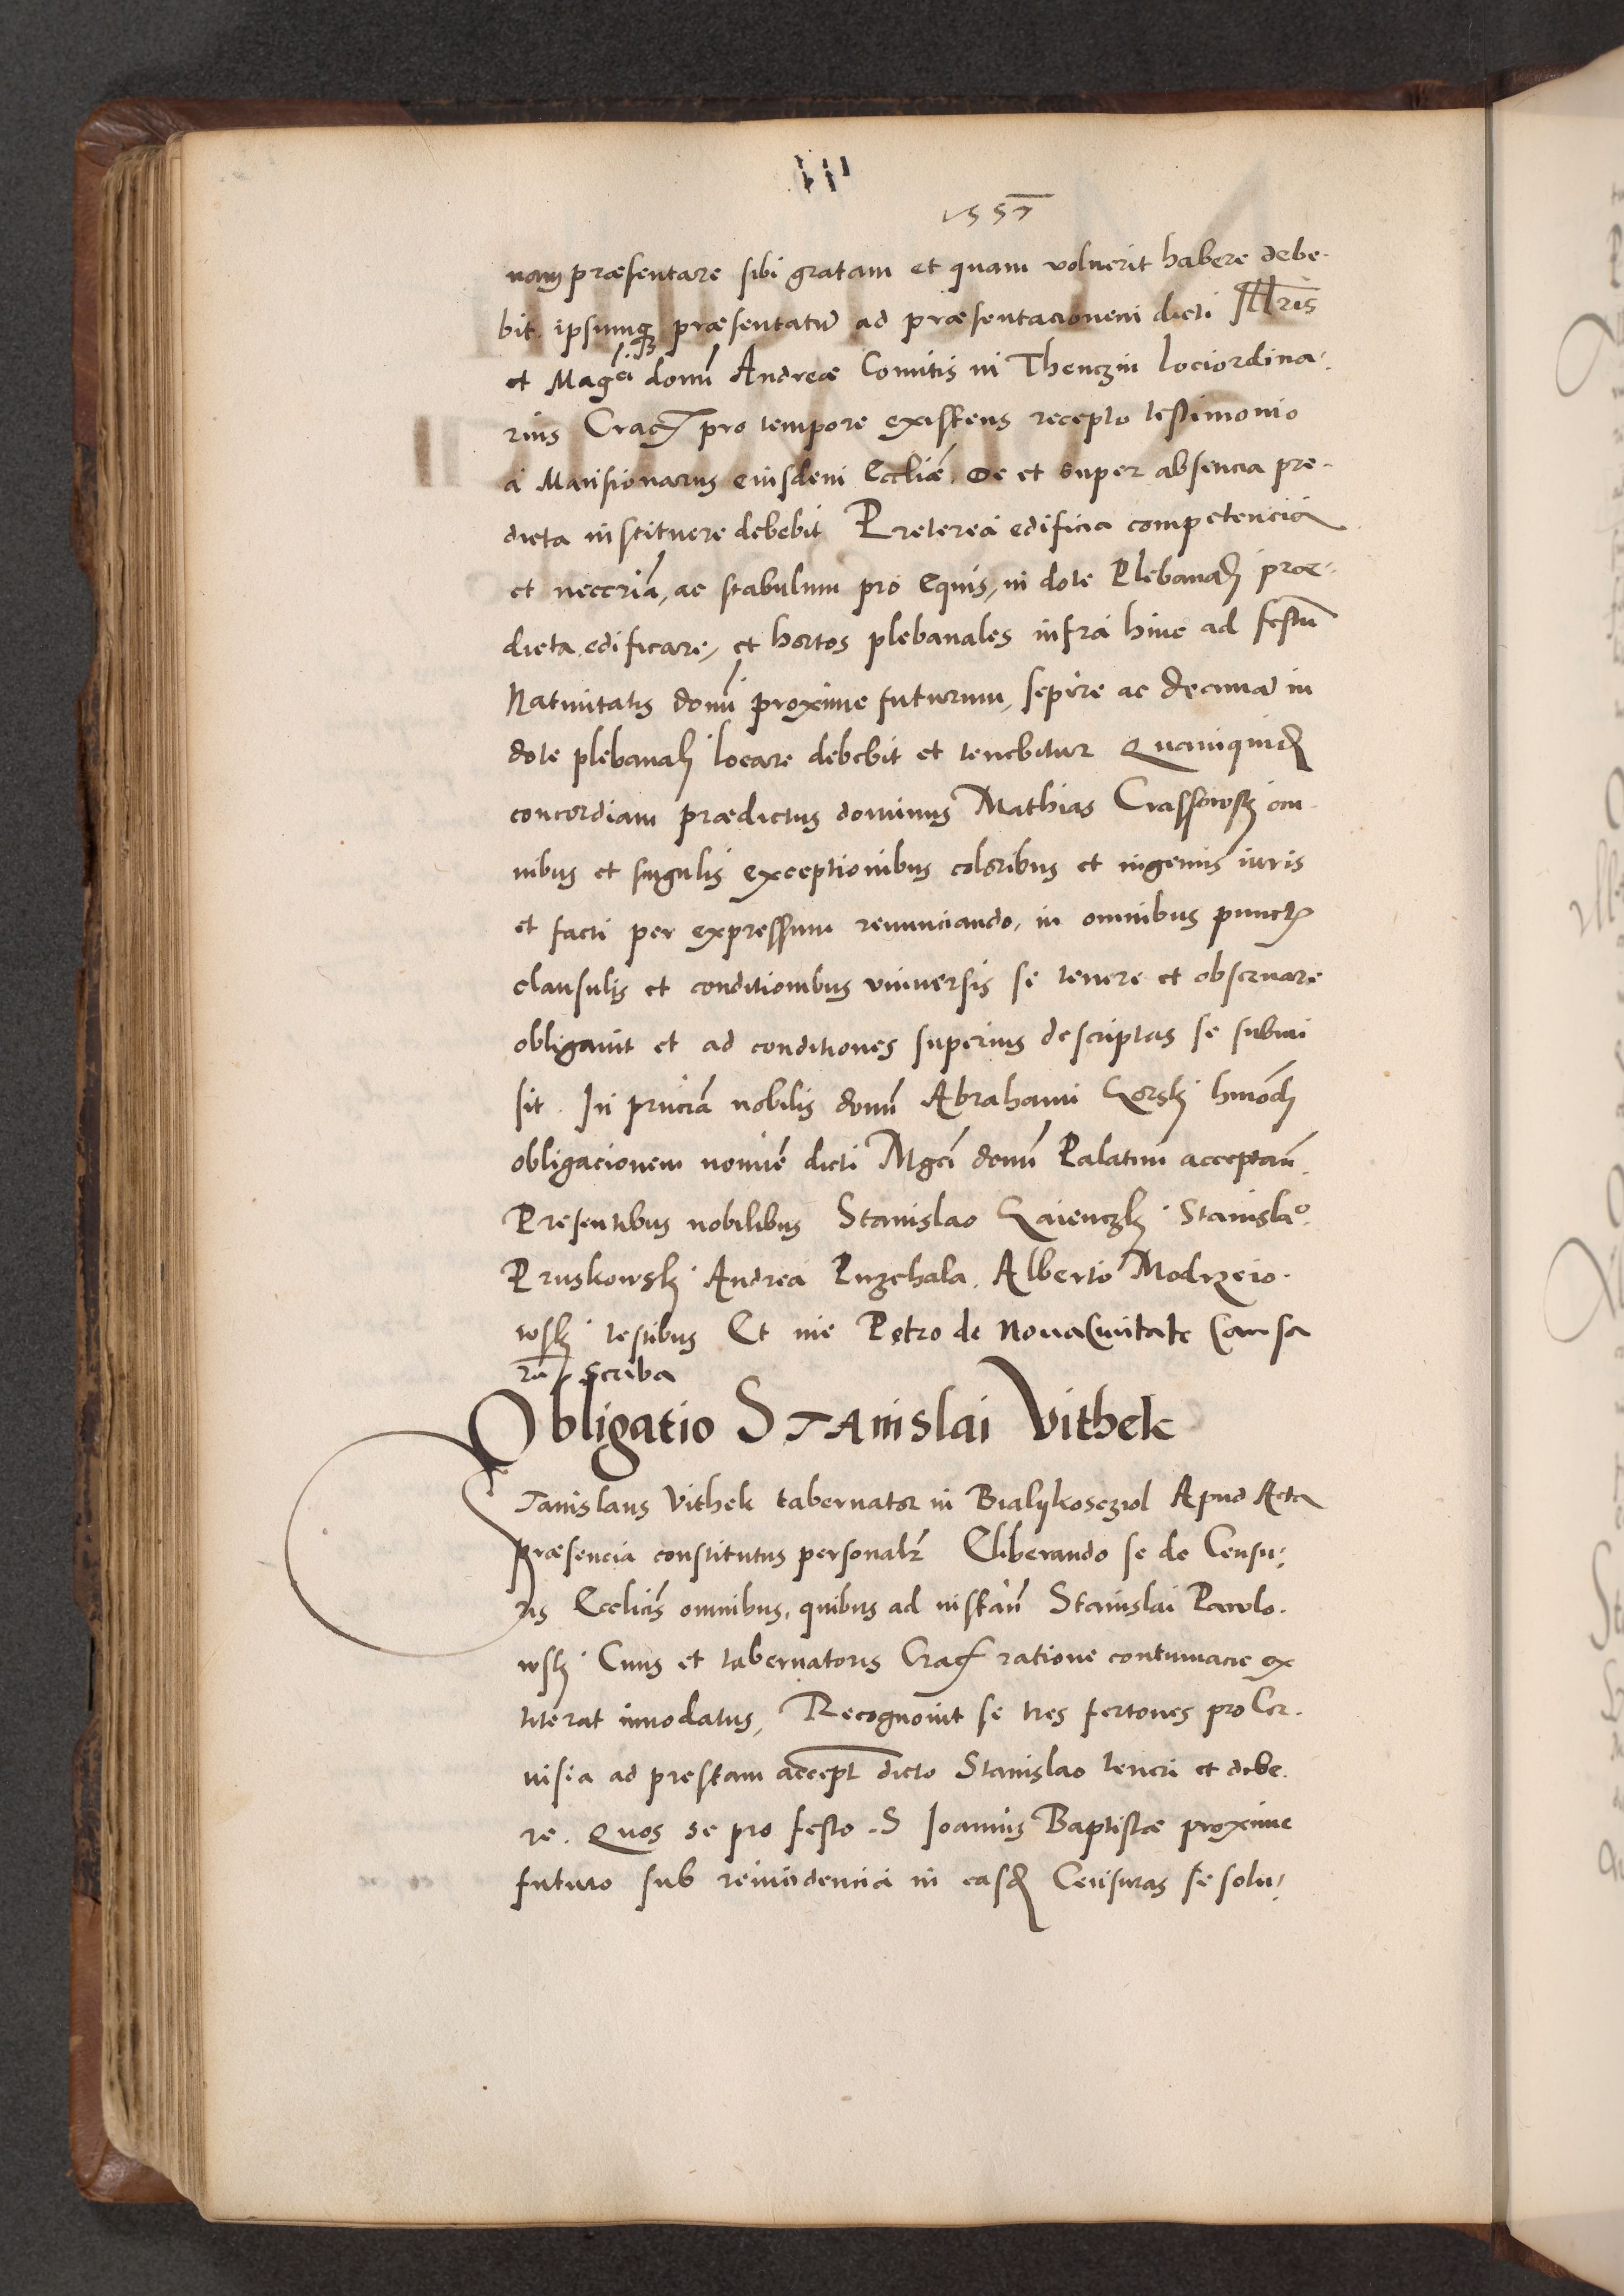 1557
nam præsentare sibi gratam et quam voluerit habere debe-
bit. ipsumq præsentatū ad præsentacionem dicti Illris
et Magci domī Andreæ Comitis in Thenczin loci ordina-
rius Crac pro tempore existens recepto testimonio
a Mansionarijs eiusdem Eccliæ. De et super absencia pre-
dicta instituere debebit Preterea edificia competencia
et neccria, ac stabulum pro Equis, in dote Plebanali præ-
dicta edificare, et hortos plebanales infra hinc ad festū
Natiuitatis domī proxime futurum, sepire ac decimā in
dote plebanali locare debebit et tenebitur Quamquid
concordiam prædictus dominus Mathias Crassowsky om-
nibus et singulis exceptionibus coloribus et ingenijs iuris
et facti per expressum renunciando, in omnibus punctis
clausulis et conditionibus vniuersis se tenere et obseruare
obligauit et ad conditiones superius descriptas se submi
sit. In pnciā nobilis domī Abrahami Gorski hmōdi
obligacionem nomīe dicti Mgci domī Palatini acceptan̄.
Presentibus nobilibus Stanislao Zaienczki Stanislao
Pruskowski Andrea Puzchala. Alberto Modrzeio-
wski testibus Et me Petro de Noua Ciuitate Causa
rū scriba
Obligatio STAnislai Vithek
Stanislaus Vithek tabernator in Bialykoscziol Apud Acta
præsencia constitutus personalr Eliberando se de Censu-
ris Ecclicis omnibus, quibus ad instan̄ Stanislai Pawlo-
wski Ciuis et tabernatoris Crac ratione contumacie ex
titerat innodatus, Recognouit se tres fertones pro Cer-
uisia ad prestam accept dicto Stanislao teneri et debe-
re. Quos se pro festo S Joannis Baptistæ proxime
futuro sub reincidencia in easd Censuras se solu-